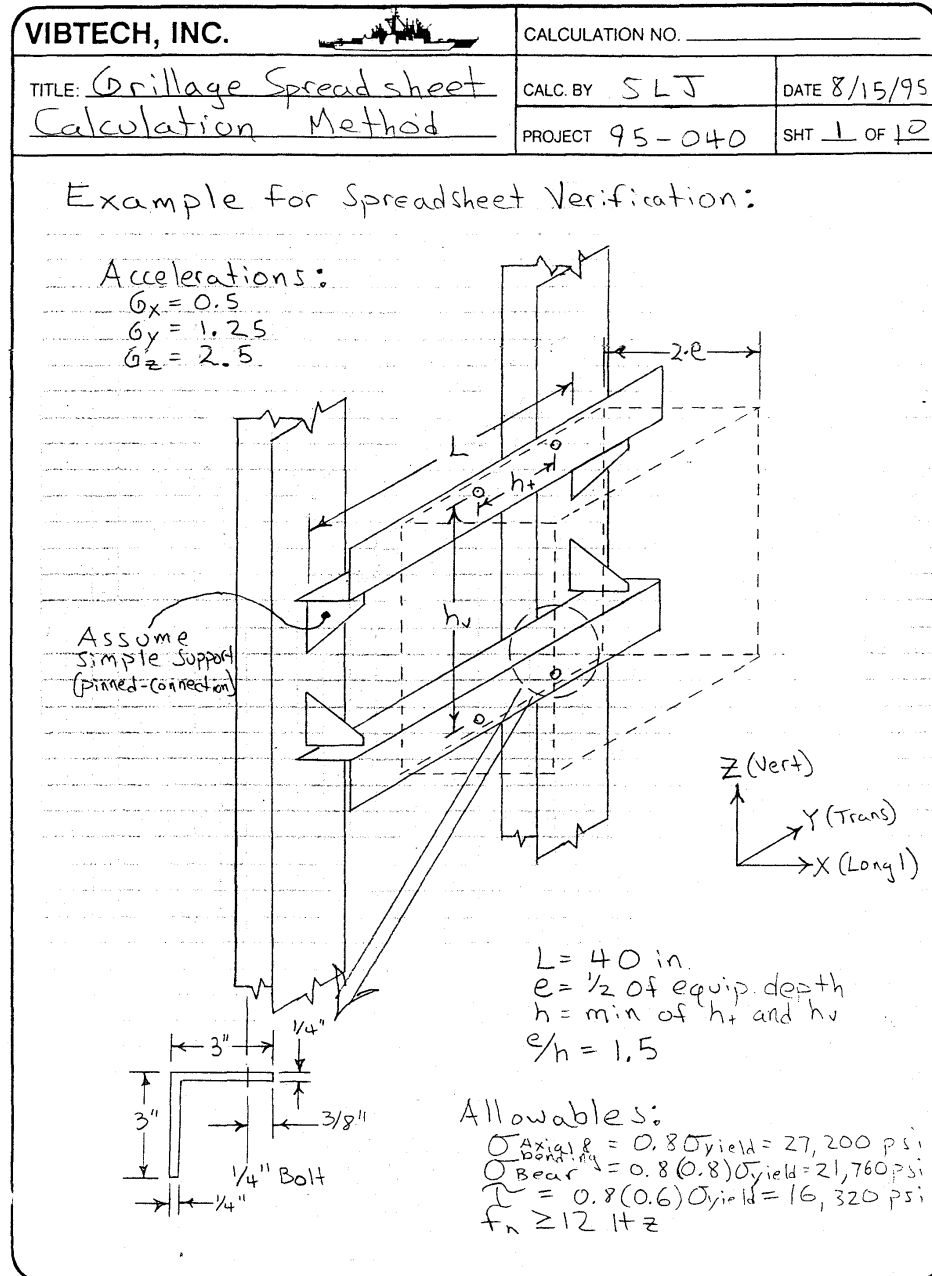 VIBTECH, INC.
CALCULATION NO.
TITLE: Grillage Spreadsheet
Calculation Method
CALC. BY SLJ
DATE 8/15/95
PROJECT 95-040
SHT 1 OF 10
Example for Spreadsheet Verification:
Accelerations:
Gx = 0.5
Gy = 1.25
Gz = 2.5
2·e
L
ht
hv
Assume
simple support
(pinned-connection)
Z (Vert)
Y (Trans)
X (Long'l)
L = 40 in.
e = 1/2 of equip. depth
h = min of ht and hv
e/h = 1.5
3"
1/4"
3"
3/8"
1/4" Bolt
1/4"
Allowables:
σ Axial & bending = 0.8 σyield = 27,200 psi
σ Bear = 0.8 (0.8) σyield = 21,760 psi
τ = 0.8 (0.6) σyield = 16,320 psi
fn ≥ 12 Hz